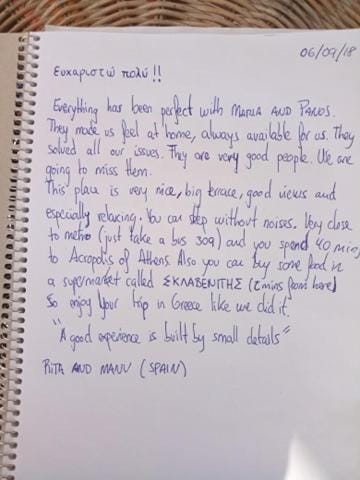 06/09/18
Ευχαριστώ πολύ!!
Everything has been perfect with MARIA AND PANOS.
They made us feel at home, always available for us. They
solved all our issues. They are very good people. We are
going to miss them.
This place is very nice, big terrace, good views and
especially relaxing. You can sleep without noises. Very close
to metro (just take a bus 309) and you spend 40 mins
to Acropolis of Athens. Also you can buy some food in
a supermarket called ΣΚΛΑΒΕΝΙΤΗΣ (mins from here)
So enjoy your trip in Greece like we did it.
"A good experience is built by small details"
RITA AND MANU (SPAIN)